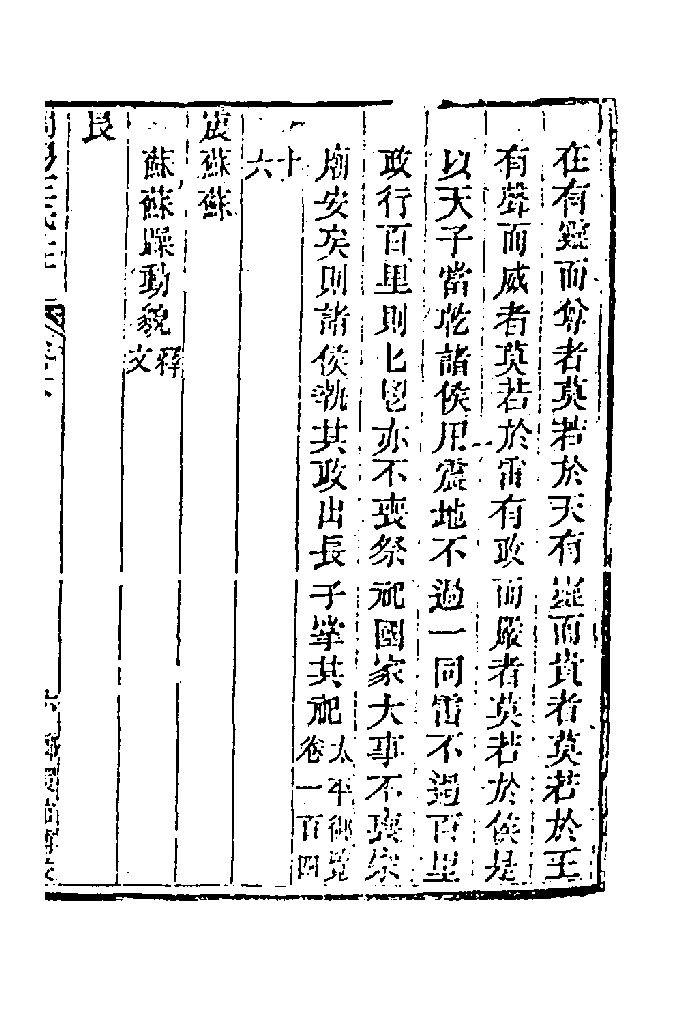 在有㚇而尊者莫若於天有㚇而貴者莫若於王
有聲而威者莫若於雷有政而嚴者莫若於侯是
以天子當乾諸侯用震地不過一同雷不過百里
政行百里則匕鬯亦不喪祭祀國家大事不喪宗
廟安矣則諸侯執其政出長子掌其祀太平御覽卷一百四
十六
震蘇蘇
蘇蘇躁動貌釋文
艮